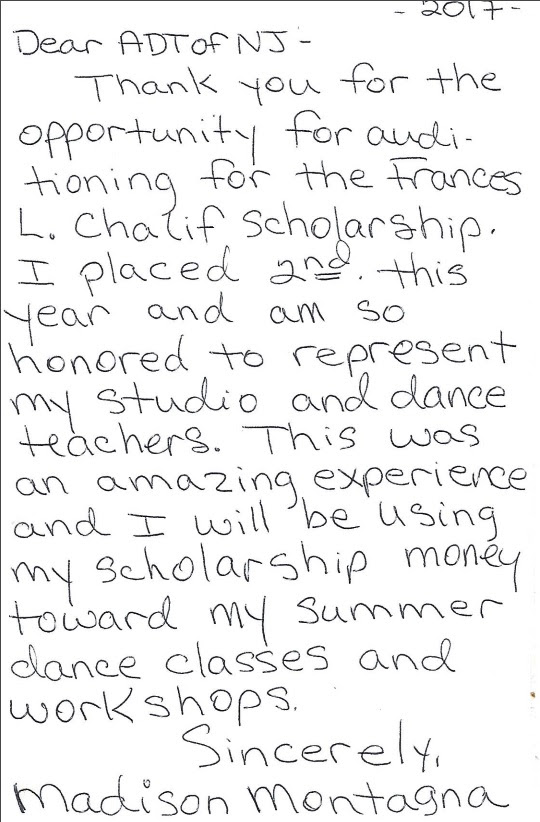 - 2017 -
Dear ADT of NJ -
Thank you for the
opportunity for audi-
tioning for the Frances
L. Chalif scholarship.
I placed 2nd. this
year and am so
honored to represent
my studio and dance
teachers. This was
an amazing experience
and I will be using
my scholarship money
toward my summer
dance classes and
workshops.
Sincerely,
Madison Montagna